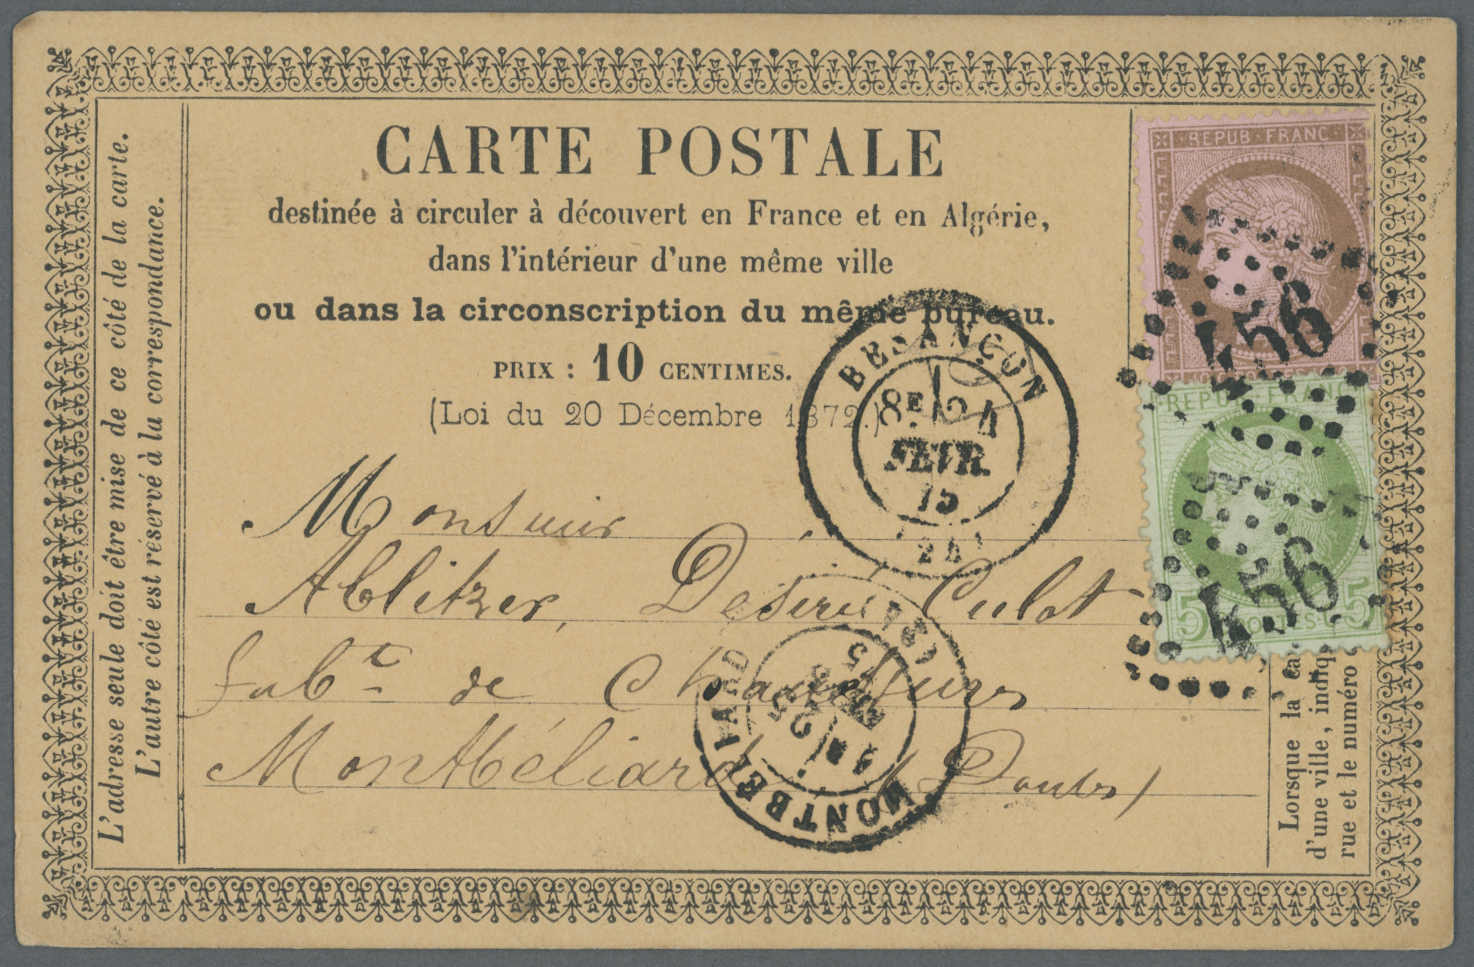 CARTE POSTALE
destinée à circuler à découvert en France et en Algérie,
dans l'intérieur d'une même ville
ou dans la circonscription du même bureau.
PRIX : 10 CENTIMES.
(Loi du 20 Décembre 1872.)
L'adresse seule doit être mise de ce côté de la carte.
L'autre côté est réservé à la correspondance.
REPUB · FRANC
456
REPUB FRAN
456
5 5
BESANÇON
8E
FEVR.
75
(24)
Monsieur
Ablitzer, Desiré Culot
Fabt de Chaussures
Montbéliard (Doubs)
MONTBELIARD
25
75
Lorsque la ca
d'une ville, indiq
rue et le numéro